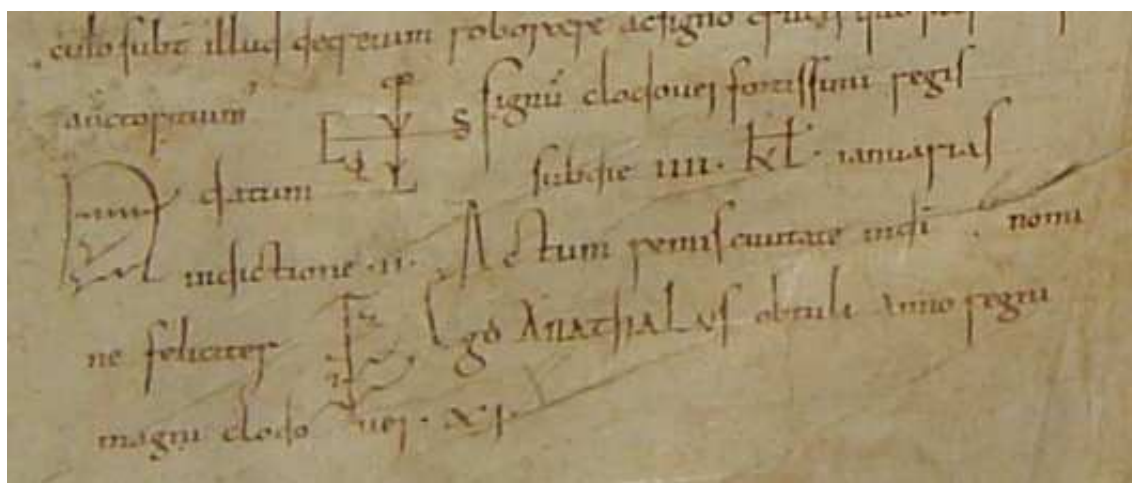 culo subt illud decretum roborare ac signo
auctoritatum signu clodouei fortissimi regis
datum subdie iiii. kl. ianuarias
indictione .ii. Actum remis ciuitate in di nomi
ne feliciter Ego Anathalus obtuli Anno regni
magni clodo uei . XI.